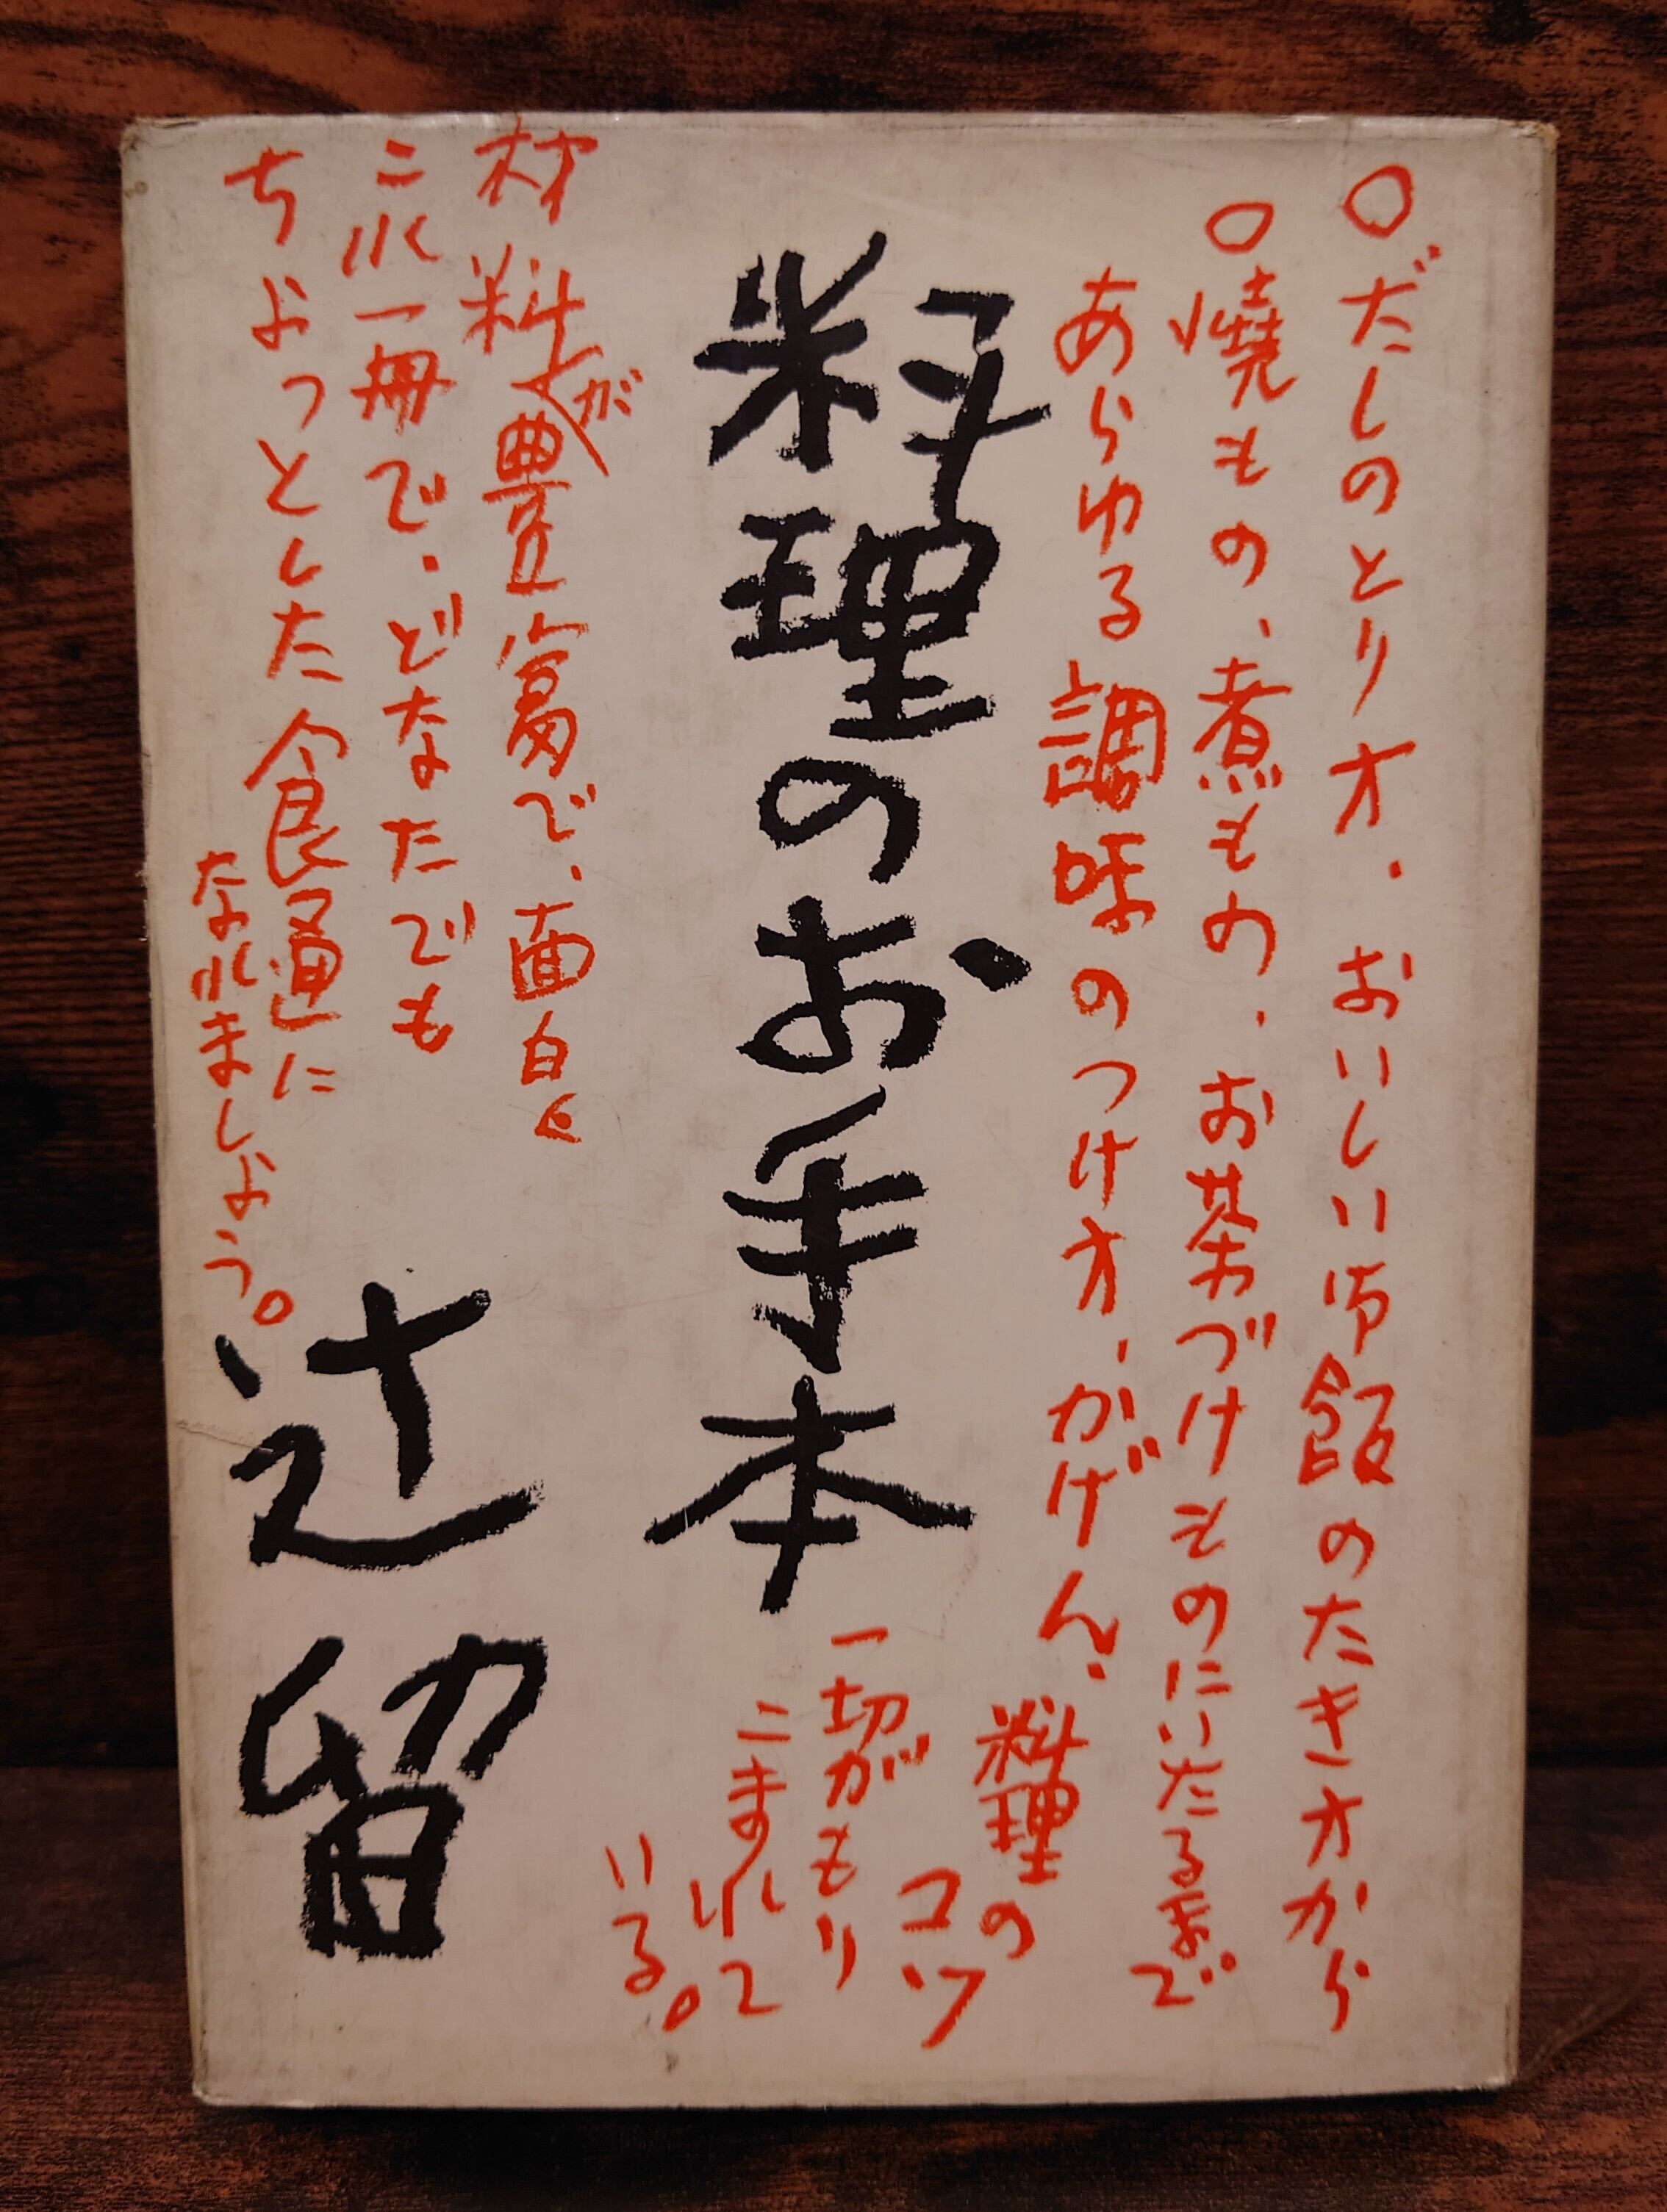 ○だしのとり方、おいしい御飯のたき方から
○燒もの、煮もの、お茶づけものにいたる迄で
あらゆる調味のつけ方、かげん、
料理の
コツ
一切がもり
こまれて
いる。
料理のお手本
材料が豊富で、面白く
これ一冊で、どなたでも
ちょっとした食通に
なれましょう。
辻留